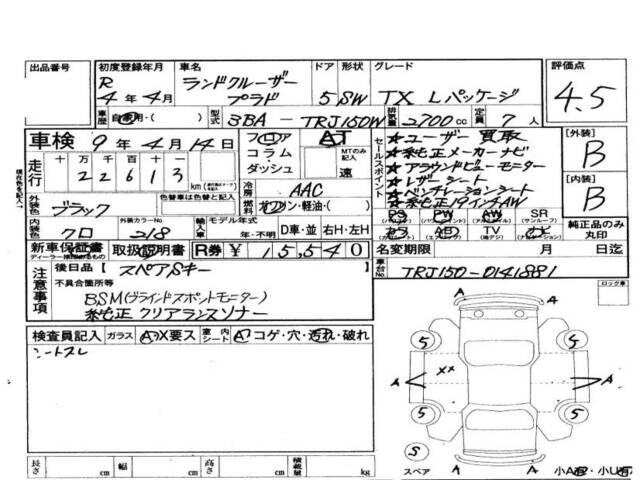 出品番号 初度登録年月 車名 ドア 形状 グレード 評価点
R 4年4月 ランドクルーザー プラド 5 SW TX Lパッケージ 4.5
車歴 自家用・( ) 型式 3BA-TRJ150W 排気量 2700cc 定員 7人
車検 9年4月14日 フロア AT
コラム
ダッシュ MTのみ記入 速
走行 十 万 千 百 十 一
22613 km
現在色を記入
外装色 ブラック 色替車は色替と記入
冷房 AAC
燃料 ガソリン・軽油・( )
内装色 クロ 外装カラーNo. 218 輸入車 モデル年式 年・不明 D車・並 右H・左H
新車保証書 取扱説明書 R券 ¥15,540
セールスポイント
★ユーザー買取
★純正メーカーナビ
★アラウンドビューモニター
★レザーシート
★ベンチレーションシート
★純正19インチAW
PS PW AW SR
カワ AB TV ナビ
[外装] B
[内装] B
純正品のみ丸印
名変期限 月 日迄
車台No. TRJ150-0141881
注意事項
後日品【 スペアSキー 】
不具合箇所等
BSM(ブラインドスポットモニター)
純正クリアランスソナー
検査員記入 ガラス A・X要ス 室内シート A・コゲ・穴・汚れ・破れ
シートスレ
ロック車
A
5 5
A ×× A
5 5
S
スペア A A 小A・小U有
長さ cm 幅 cm 高さ cm 積載量 kg